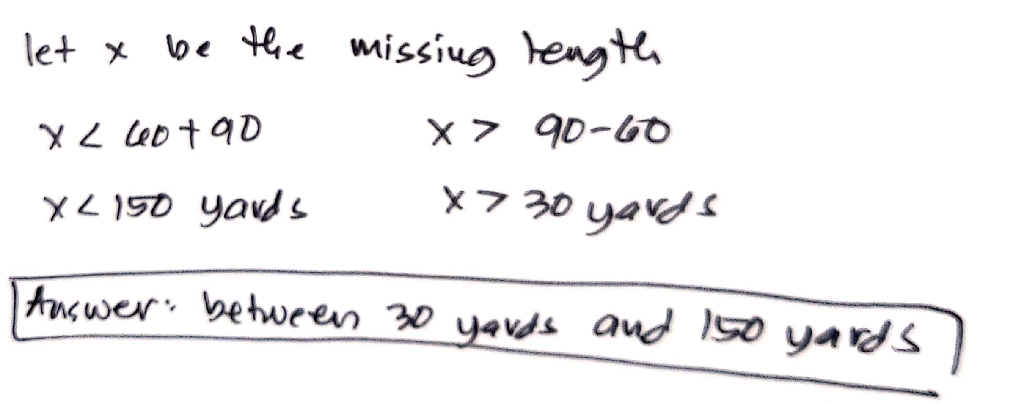 let x be the missing length
x < 60 + 90 x > 90 - 60
x < 150 yards x > 30 yards
Answer: between 30 yards and 150 yards